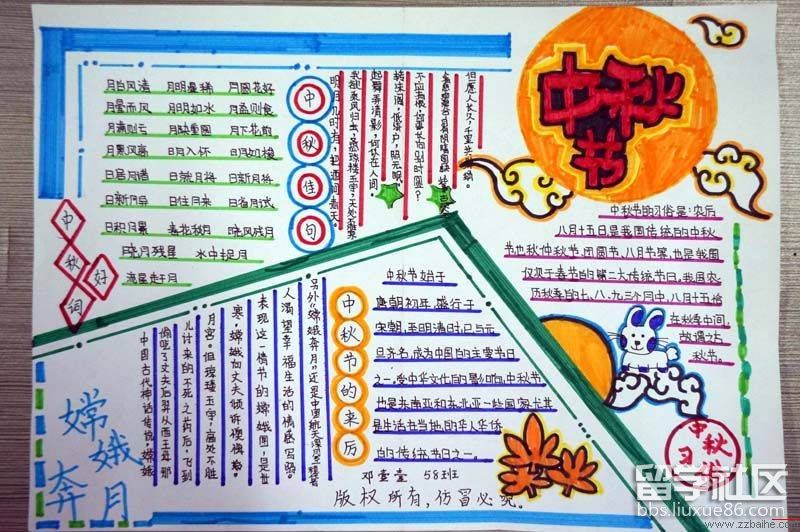 中秋节
月白风清 月明星稀 月圆花好
月晕而风 月明如水 月盈则食
月满则亏 月缺重圆 月下花前
月黑风高 日月入怀 日月如梭
日居月诸 日就月将 日新月异
日往月来 日省月试
日积月累 春花秋月 晓风残月
晓月残星 水中捉月
流星赶月
中秋好词
中秋佳句
明月几时有，把酒问青天。
起舞弄清影，何似在人间。
转朱阁，低绮户，照无眠。
不应有恨，何事长向别时圆？
但愿人长久，千里共婵娟。
中秋节的习俗是：农历
八月十五日是我国传统的中秋
节也称仲秋节、团圆节、八月节等，也是我国
仅次于春节的第二大传统节日，我国农
历秋季的七、八、九三个月中，八月十五恰
在秋季中间
故谓之
秋节。
中秋
习俗
中秋节的来历
中秋节始于
唐朝初年，盛行于
宋朝，至明清时已与元
旦齐名，成为中国的主要节日
之一，受中华文化的影响，中秋节
也是东南亚和东北亚一些国家尤其
是生活在当地的华人华侨
的传统节日之一。
嫦娥
奔月
中国古代神话传说，嫦娥
偷吃了丈夫后羿从西王母那
儿讨来的不死之药后，飞到
月宫。但琼楼玉宇，高处不胜
寒，嫦娥向丈夫倾诉懊悔。
表现这一情节的嫦娥图，是世
人渴望幸福生活的情感写照。
邓莹莹 58班
版权所有，仿冒必究。
留学社区
bbs.liuxue86.com
www.zzbaihe.com